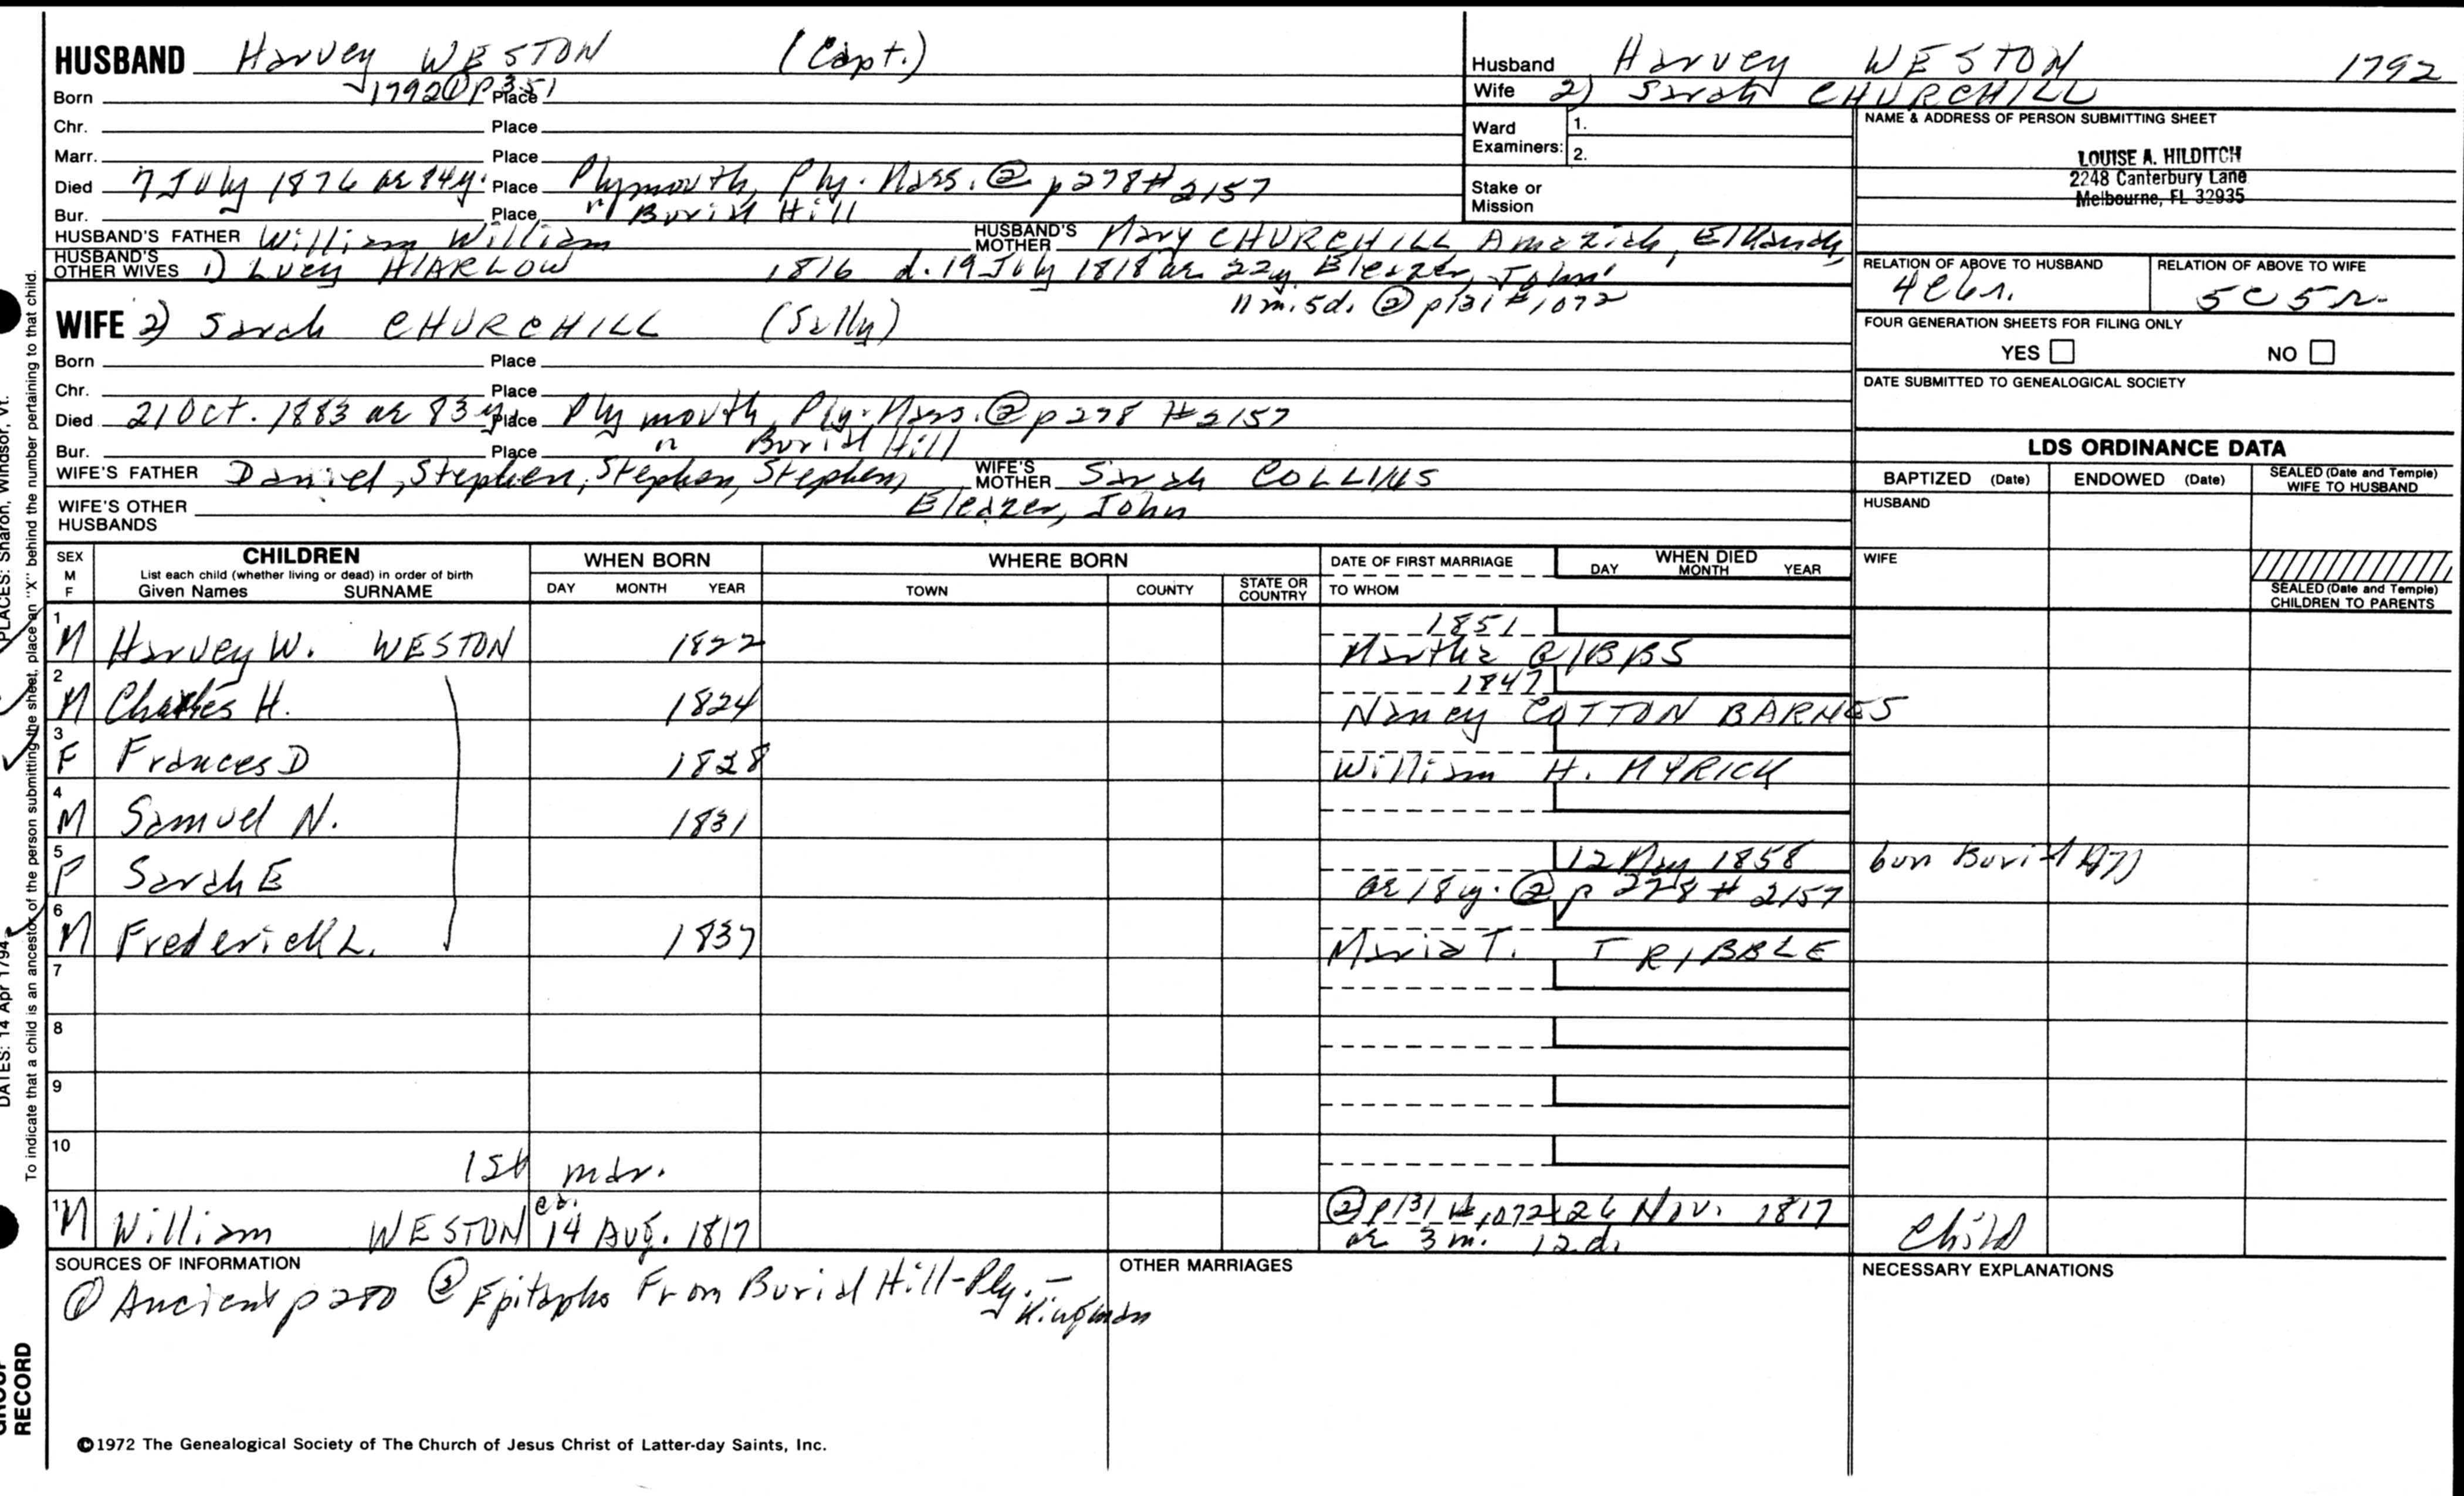 HUSBAND Harvey WESTON (Capt.)
Born 1792 ① p 351 Place
Chr. Place
Marr. Place
Died 7 July 1876 ae 84y. Place Plymouth, Ply. Mass. ② p 278 # 2157
Bur. Place " Burial Hill
HUSBAND'S FATHER William William HUSBAND'S MOTHER Mary CHURCHILL Amaziah, Elkanah,
HUSBAND'S OTHER WIVES 1) Lucy HARLOW 1816 d. 19 July 1818 ae 22y Eleazer, John
11 m. 5d. ② p131 # 1072
WIFE 2) Sarah CHURCHILL (Sally)
Born Place
Chr. Place
Died 21 Oct. 1883 ae 83y. Place Plymouth, Ply. Mass. ② p 278 # 2157
Bur. Place " Burial Hill
WIFE'S FATHER Daniel, Stephen, Stephen, Stephen, WIFE'S MOTHER Sarah COLLINS
Eleazer, John
WIFE'S OTHER HUSBANDS
Husband Harvey WESTON 1792
Wife 2) Sarah CHURCHILL
Ward Examiners: 1.
2.
Stake or Mission
NAME & ADDRESS OF PERSON SUBMITTING SHEET
LOUISE A. HILDITCH
2248 Canterbury Lane
Melbourne, FL 32935
RELATION OF ABOVE TO HUSBAND RELATION OF ABOVE TO WIFE
4C6r. 5C5r.
FOUR GENERATION SHEETS FOR FILING ONLY
YES NO
DATE SUBMITTED TO GENEALOGICAL SOCIETY
LDS ORDINANCE DATA
BAPTIZED (Date) ENDOWED (Date) SEALED (Date and Temple) WIFE TO HUSBAND
HUSBAND
WIFE
SEALED (Date and Temple) CHILDREN TO PARENTS
SEX M F CHILDREN WHEN BORN WHERE BORN DATE OF FIRST MARRIAGE WHEN DIED
List each child (whether living or dead) in order of birth
Given Names SURNAME DAY MONTH YEAR TOWN COUNTY STATE OR COUNTRY TO WHOM DAY MONTH YEAR
1 M Harvey W. WESTON 1822 1851
Martha GIBBS
2 M Charles H. 1824 1847
Nancy COTTON BARNES
3 F Frances D 1828 William H. MYRICK
4 M Samuel N. 1831
5 F Sarah E 12 May 1858
ae 18 y. ② p 278 # 2157
6 M Frederick L. 1837 Maria T. TRIBBLE
7
8
9
10
1st mar.
11 M William WESTON ca. 14 Aug. 1817 ② p131 # 1072 26 Nov. 1817 Child
ae 3 m. 12 d.
SOURCES OF INFORMATION
① Ancient p 280 ② Epitaphs From Burial Hill - Ply. -
Kingman
OTHER MARRIAGES
NECESSARY EXPLANATIONS
©1972 The Genealogical Society of The Church of Jesus Christ of Latter-day Saints, Inc.
PLACES: Sharon, Windsor, Vt.
DATES: 14 Apr 1794
To indicate that a child is an ancestor of the person submitting the sheet, place an "X" behind the number pertaining to that child.
GROUP
RECORD